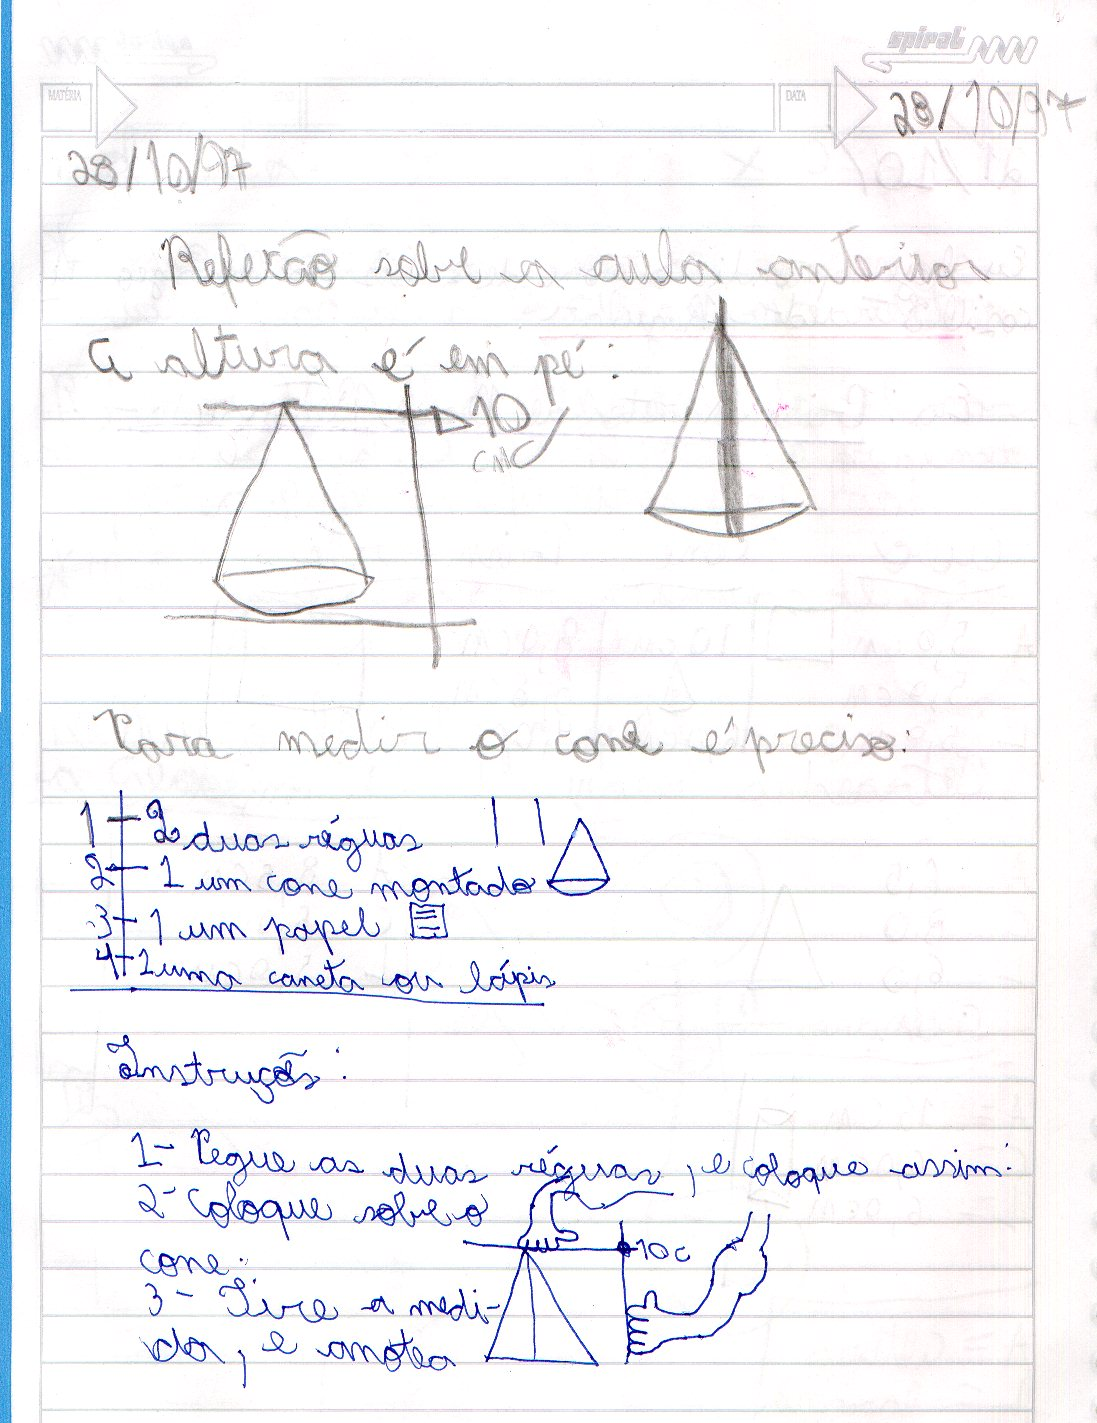 spiral
MATÉRIA
DATA
28/10/97
28/10/97
Refexão sobre a aula anterior
A altura é em pé:
10
cm
Para medir o cone é preciso:
1 - 2 duas réguas
2 - 1 um cone montado
3 - 1 um papel
4 - 1 uma caneta ou lápis
Instruções:
1- Pegue as duas réguas, e coloque assim:
2- Coloque sobre o
cone:
10c
3- Tire a medi-
da, e anotea